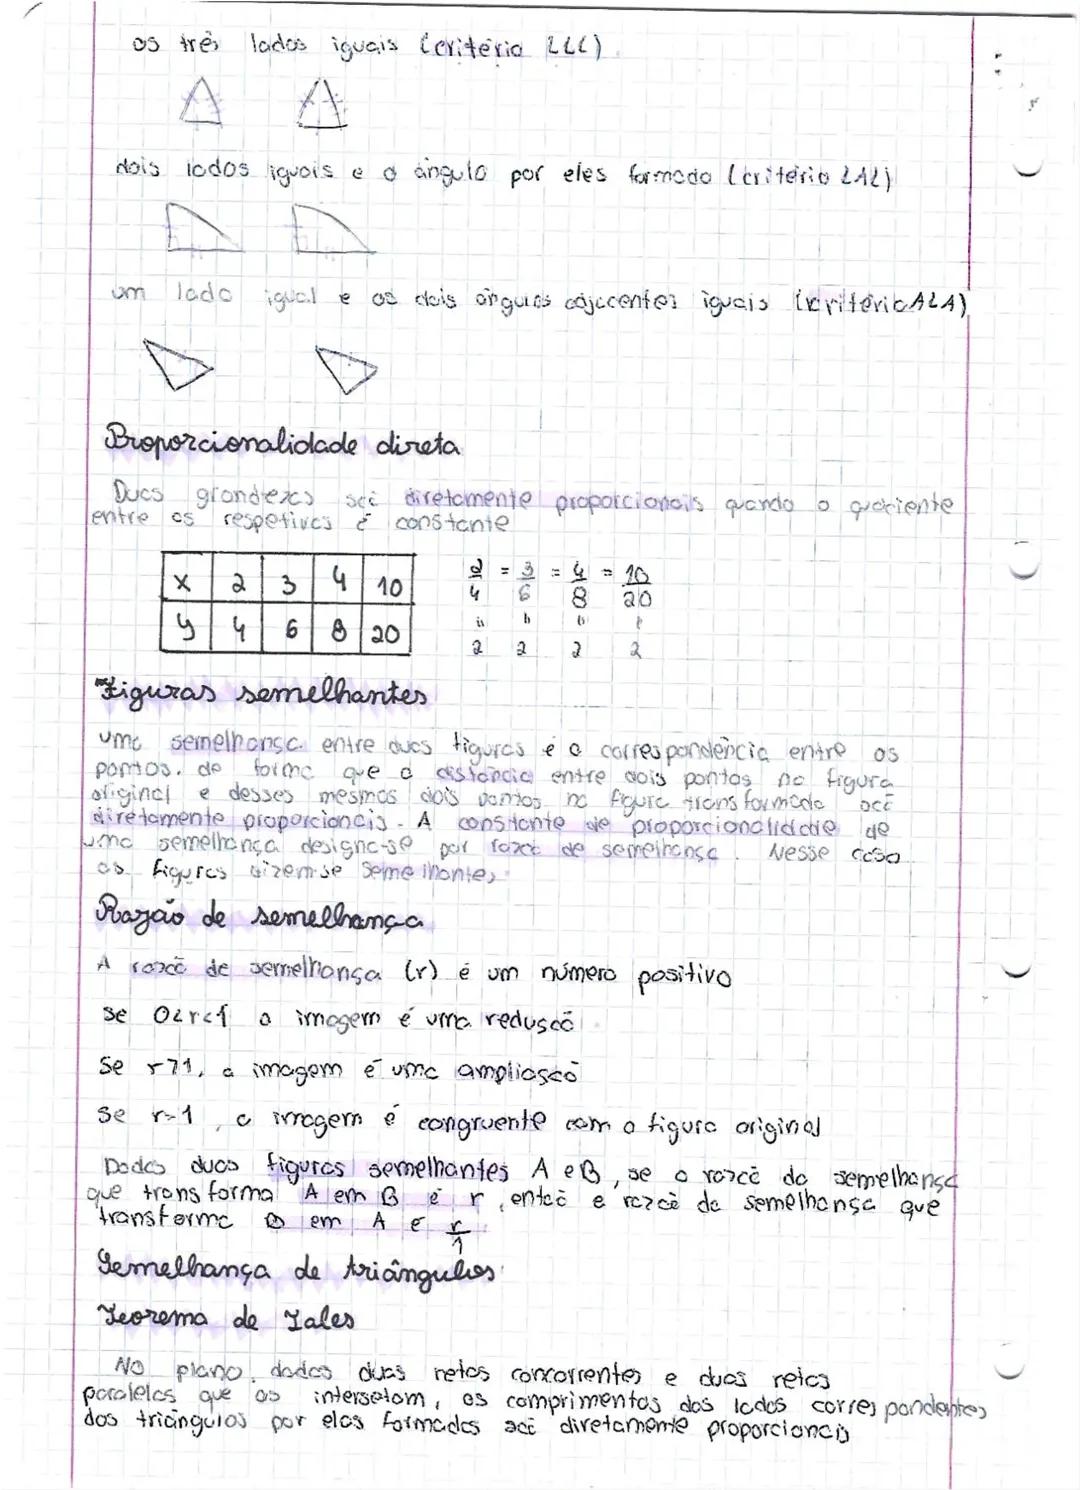 os três lados iguais (critério LLL)
dois lados iguais e o ângulo por eles formado (critério LAL)
um lado igual e os dois ângulos adjacentes iguais (critério ALA)
Proporcionalidade direta
Duas grandezas são diretamente proporcionais quando o quociente
entre as respetivas é constante
x 2 3 4 10
y 4 6 8 20
2/4 = 3/6 = 4/8 = 10/20
" " " "
2 2 2 2
Figuras semelhantes
uma semelhança entre duas figuras é a correspondência entre os
pontos. de forma que a distância entre dois pontos na figura
original e desses mesmos dois pontos na figura transformada são
diretamente proporcionais. A constante de proporcionalidade de
uma semelhança designa-se por razão de semelhança. Nesse caso
as figuras dizem-se semelhantes
Razão de semelhança
A razão de semelhança (r) é um número positivo
se 0<r<1 a imagem é uma redução
se r>1, a imagem é uma ampliação
se r=1, a imagem é congruente com a figura original
Dadas duas figuras semelhantes A e B, se a razão da semelhança
que transforma A em B é r, então e razão da semelhança que
transforma B em A é r/1
Semelhança de triângulos
Teorema de Tales
No plano, dadas duas retas concorrentes e duas retas
paralelas que as intersetam, os comprimentos dos lados correspondentes
dos triângulos por elas formados são diretamente proporcionais